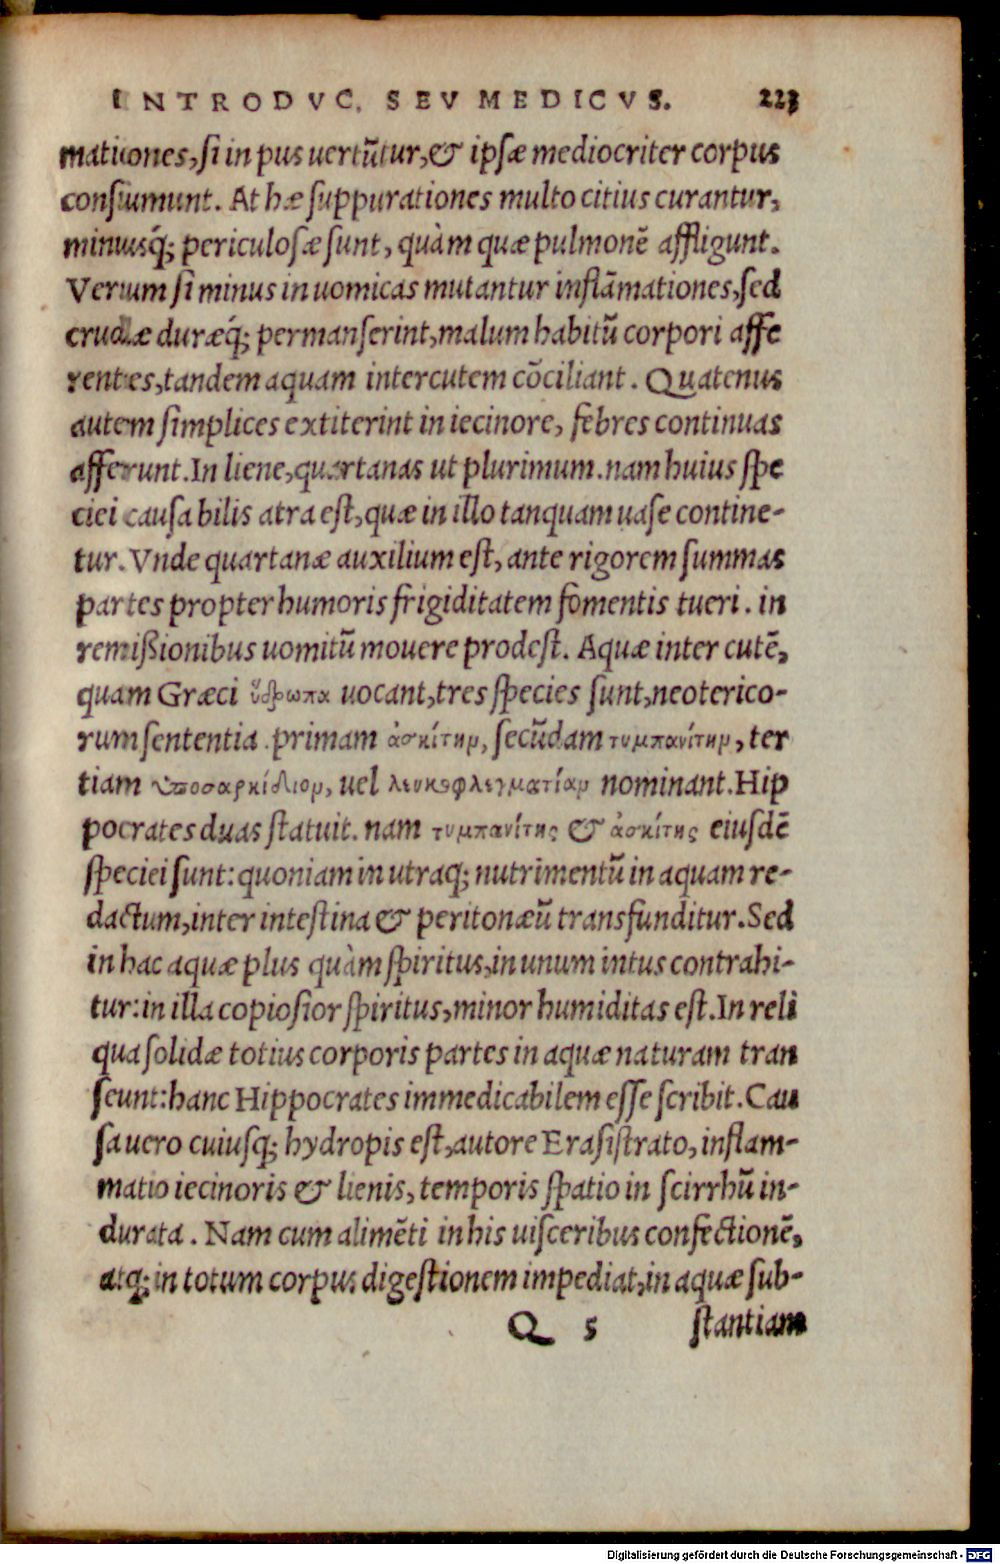 INTRODVC. SEV MEDICVS. 223
mationes, si in pus uertũtur, & ipsæ mediocriter corpus
consumunt. At hæ suppurationes multo citius curantur,
minusq́; periculosæ sunt, quàm quæ pulmonẽ affligunt.
Verum si minus in uomicas mutantur inflãmationes, sed
crudæ duræq́; permanserint, malum habitũ corpori affe
rentes, tandem aquam intercutem cõciliant. Quatenus
autem simplices extiterint in iecinore, febres continuas
afferunt. In liene, quartanas ut plurimum. nam huius spe
ciei causa bilis atra est, quæ in illo tanquam uase contine-
tur. Vnde quartanæ auxilium est, ante rigorem summas
partes propter humoris frigiditatem fomentis tueri. in
remißionibus uomitũ mouere prodest. Aquæ inter cutẽ,
quam Græci ὕδρωπα uocant, tres species sunt, neoterico-
rum sententia. primam ἀσκίτην, secũdam τυμπανίτην, ter
tiam ὑποσαρκίδιον, uel λευκοφλεγματίαν nominant. Hip
pocrates duas statuit. nam τυμπανίτης & ἀσκίτης eiusdẽ
speciei sunt: quoniam in utraq; nutrimentũ in aquam re-
dactum, inter intestina & peritonæũ transfunditur. Sed
in hac aquæ plus quàm spiritus, in unum intus contrahi-
tur: in illa copiosior spiritus, minor humiditas est. In reli
qua solidæ totius corporis partes in aquæ naturam tran
seunt: hanc Hippocrates immedicabilem esse scribit. Cau
sa uero cuiusq; hydropis est, autore Erasistrato, inflam-
matio iecinoris & lienis, temporis spatio in scirrhũ in-
durata. Nam cum alimẽti in his uisceribus confectionẽ,
atq; in totum corpus digestionem impediat, in aquæ sub-
Q 5 stantiam
Digitalisierung gefördert durch die Deutsche Forschungsgemeinschaft - DFG